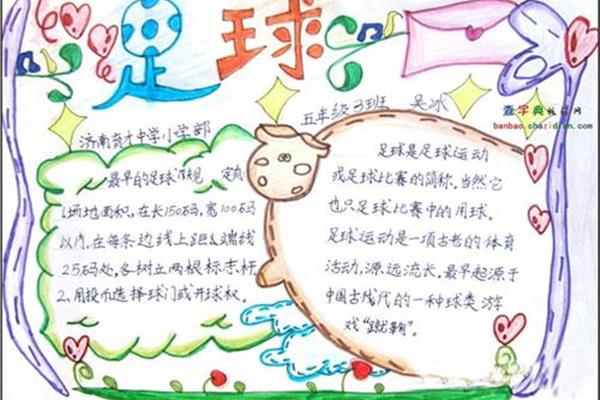 足球
五年级3班 吴冰
查字典板报网
banbao.chazidian.com
济南育才中学小学部
最早的足球
1.场地面积,在长150码,宽100码
以内,在每条边线上距离端线
25码处,各树立两根标志杆
2.用投币选择球门或开球权。
足球是足球运动
或足球比赛的简称。当然它
也只足球比赛中的用球。
足球运动是一项古老的体育
活动,源远流长。最早起源于
中国古代的一种球类游
戏"蹴鞠"。